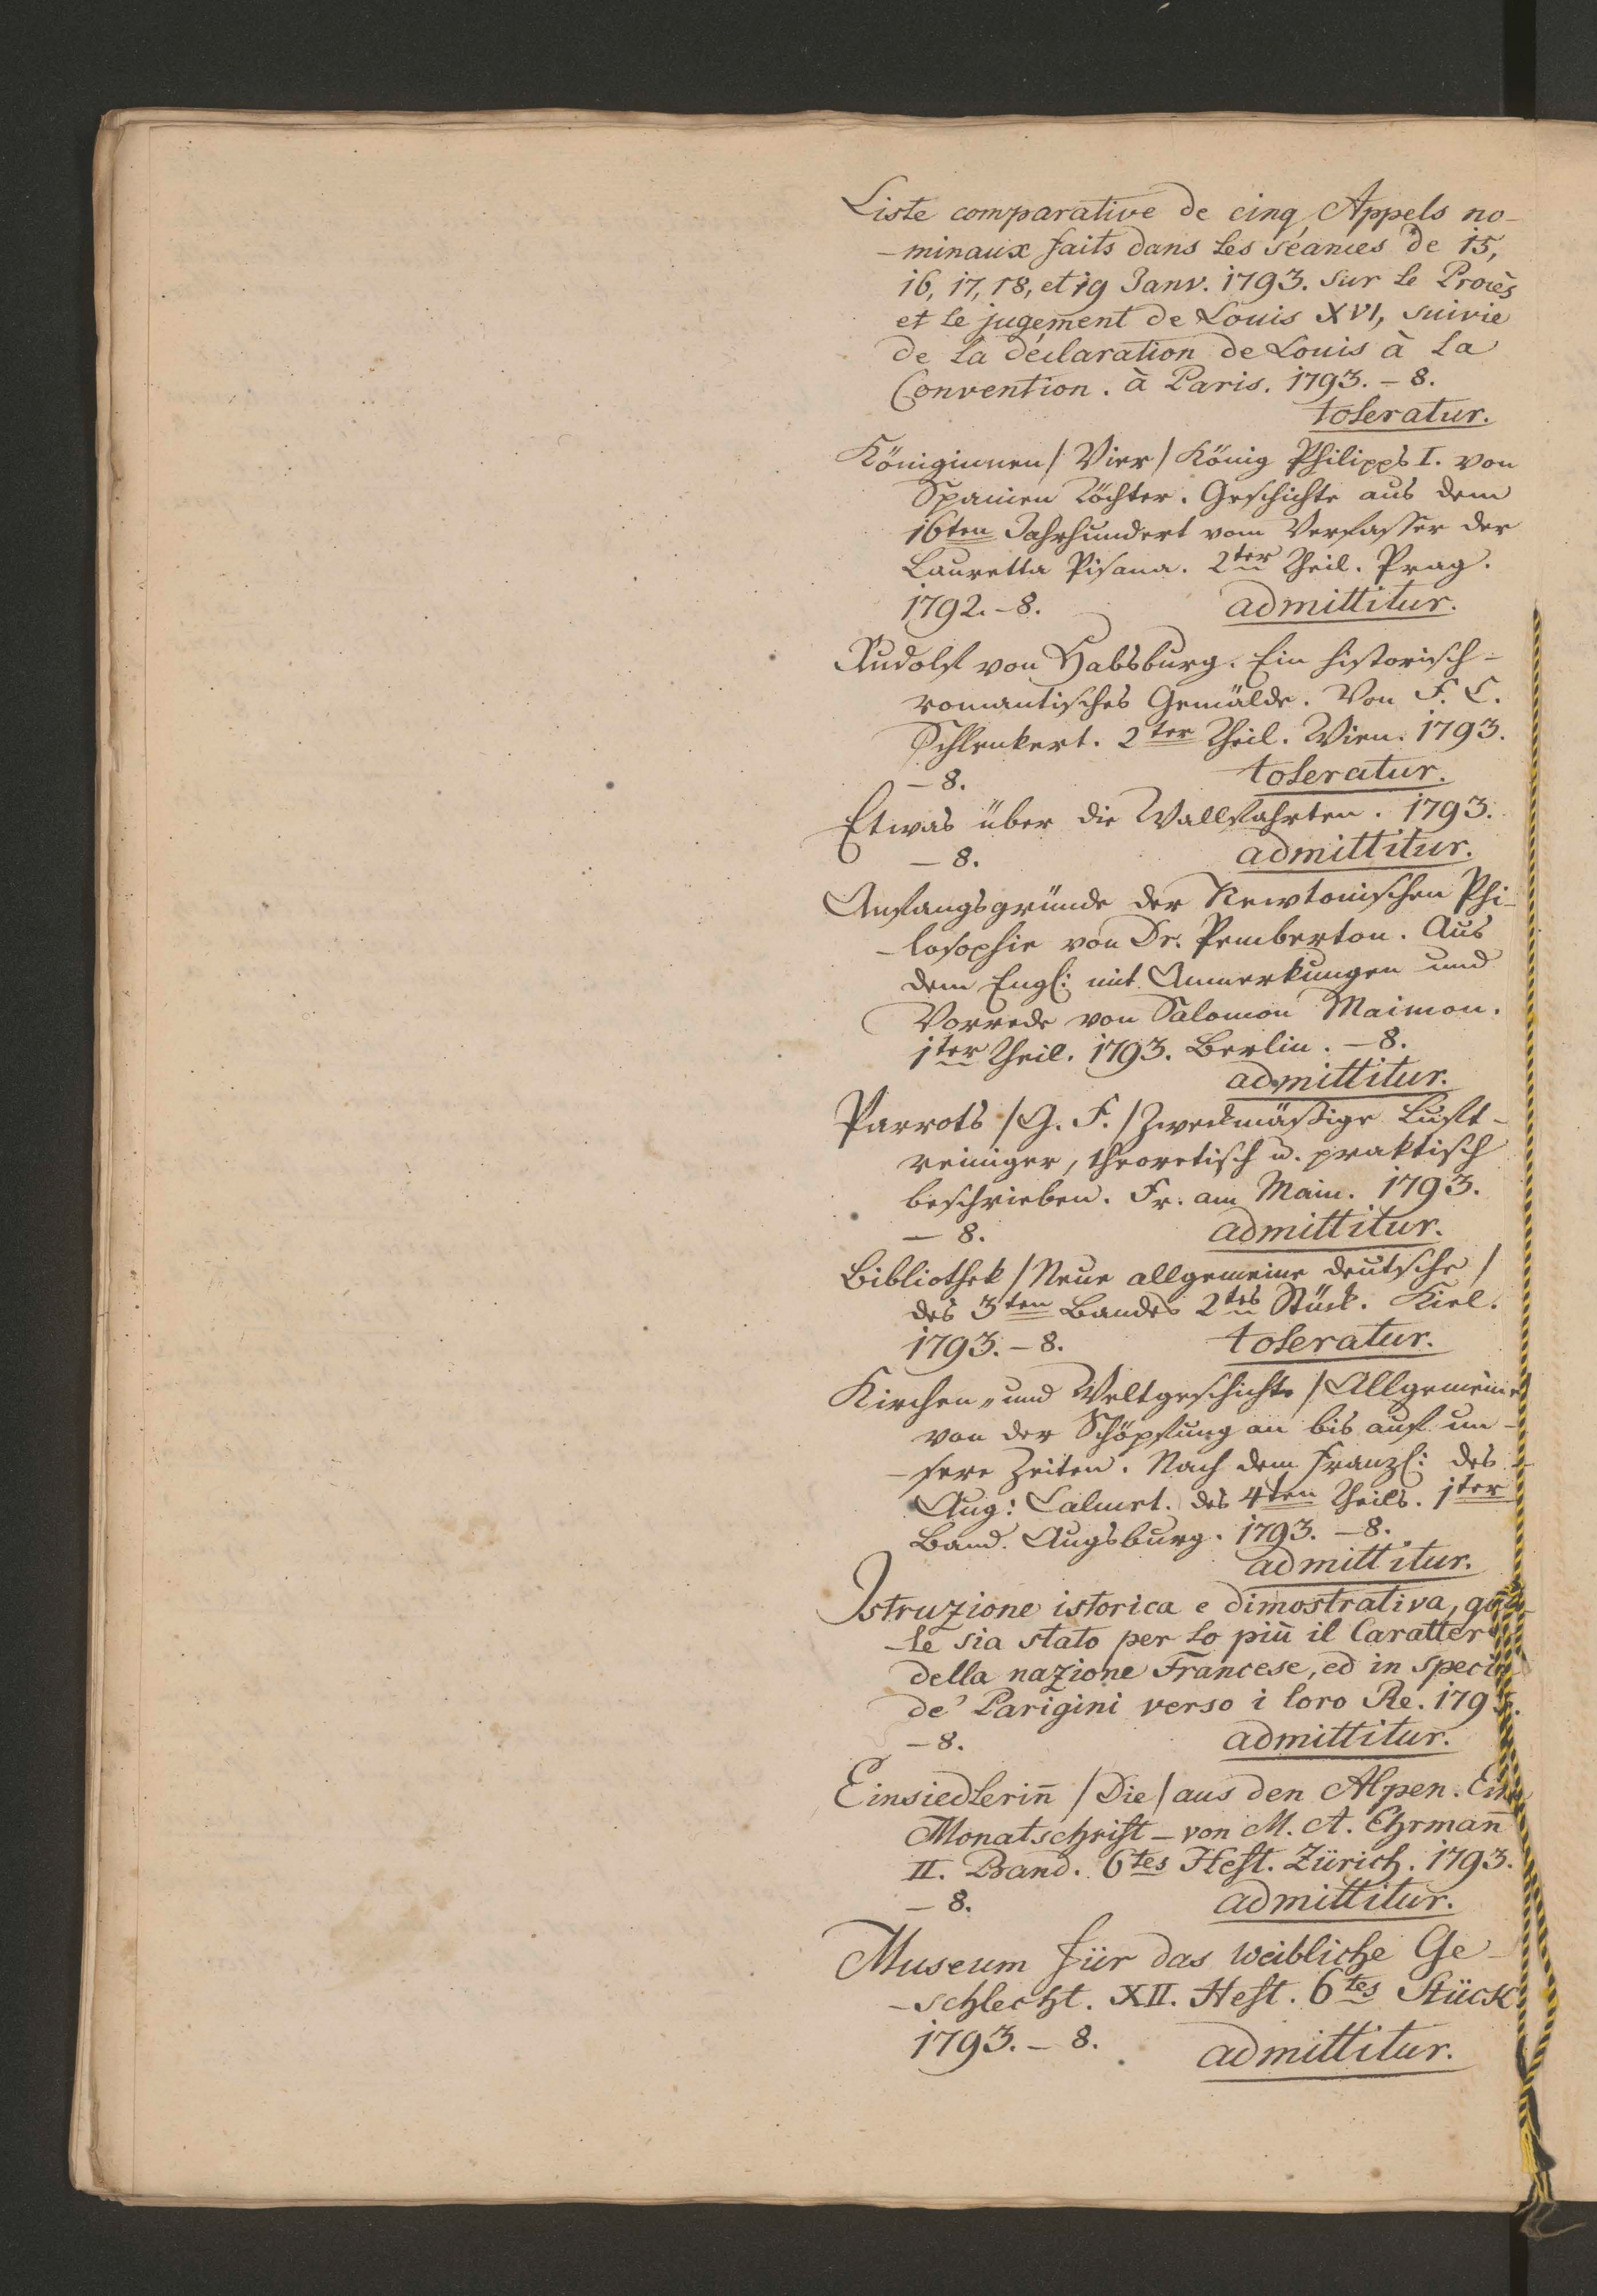 Liste comparative de cinq Appels no-
-minaux faits dans les séances de 15,
16, 17, 18, et 19 Janv. 1793. sur le Procès
et le jugement de Louis XVI, suivie
de la déclaration de Louis à la
Convention. à Paris. 1793. – 8.
toleratur.
Königinnen / Vier / König Philipps I. von
Spanien Töchter. Geschichte aus dem
16ten Jahrhundert vom Verfasser der
Lauretta Pisana. 2ter Theil. Prag.
1792. – 8. admittitur.
Rudolf von Habsburg. Ein historisch-
romantisches Gemälde. Von F. C.
Schlenkert. 2ter Theil. Wien. 1793.
– 8. toleratur.
Etwas über die Wallfahrten. 1793.
– 8. admittitur.
Anfangsgründe der Newtonischen Phi-
-losophie von Dr. Pemberton. Aus
dem Engl: mit Anmerkungen und
Vorrede von Salomon Maimon.
1ter Theil. 1793. Berlin. – 8.
admittitur.
Parrots / G. F. / Zweckmäßige Luft-
reiniger, theoretisch u. praktisch
beschrieben. Fr. am Main. 1793.
– 8. admittitur.
Bibliothek / Neue allgemeine deutsche /
des 3ten Bandes 2tes Stück. Kiel.
1793. – 8. toleratur.
Kirchen- und Weltgeschichte / Allgemeine
von der Schöpfung an bis auf un-
-sere Zeiten. Nach dem Franzs: des
Aug: Calmet. des 4ten Theils. 1ter
Band. Augsburg. 1793. – 8.
admittitur.
Istruzione istorica e dimostrativa, qua-
-le sia stato per lo più il Carattere
della nazione Francese, ed in specie
de' Parigini verso i loro Re. 1793.
– 8. admittitur.
Einsiedlerin̄ / Die / aus den Alpen. Eine
Monatschrift – von M. A. Ehrman̄
II. Band. 6tes Heft. Zürich. 1793.
– 8. admittitur.
Museum für das weibliche Ge-
-schlecht. XII. Heft. 6tes Stück
1793. – 8. admittitur.